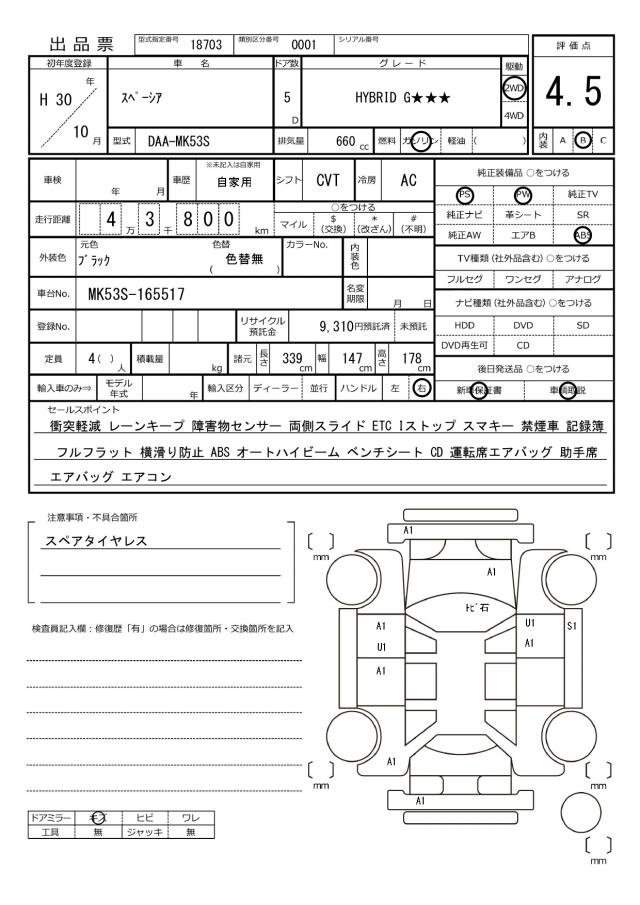 出品票 型式指定番号 18703 類別区分番号 0001 シリアル番号
評価点
4.5
初年度登録 車名 ドア数 グレード 駆動
H 30 年 10 月
スペーシア 5 D HYBRID G★★★ 2WD
4WD
型式 DAA-MK53S 排気量 660 cc 燃料 ガソリン 軽油 ( )
内装 A B C
車検 年 月 車歴 ※未記入は自家用 自家用 シフト CVT 冷房 AC
走行距離 4 万 3 千 8 0 0 km
○をつける
マイル $(交換) *(改ざん) #(不明)
外装色 元色 ブラック 色替 ( 色替無 ) カラーNo. 内装色
車台No. MK53S-165517 名変期限 月 日
登録No. リサイクル預託金 9,310円預託済 未預託
定員 4 ( ) 人 積載量 kg 諸元 長さ 339 cm 幅 147 cm 高さ 178 cm
輸入車のみ⇒ モデル年式 年 輸入区分 ディーラー ・ 並行 ハンドル 左 右
純正装備品 ○をつける
PS PW 純正TV
純正ナビ 革シート SR
純正AW エアB ABS
TV種類(社外品含む) ○をつける
フルセグ ワンセグ アナログ
ナビ種類(社外品含む) ○をつける
HDD DVD SD
DVD再生可 CD
後日発送品 ○をつける
新車保証書 車輌取説
セールスポイント
衝突軽減 レーンキープ 障害物センサー 両側スライド ETC Iストップ スマキー 禁煙車 記録簿
フルフラット 横滑り防止 ABS オートハイビーム ベンチシート CD 運転席エアバッグ 助手席
エアバッグ エアコン
注意事項・不具合箇所
スペアタイヤレス
検査員記入欄：修復歴「有」の場合は修復箇所・交換箇所を記入
ドアミラー キズ ヒビ ワレ
工具 無 ジャッキ 無
A1
[ ] mm
[ ] mm
A1
トビ石
A1
U1
S1
U1
A1
A1
A1
[ ] mm
[ ] mm
A1
[ ] mm